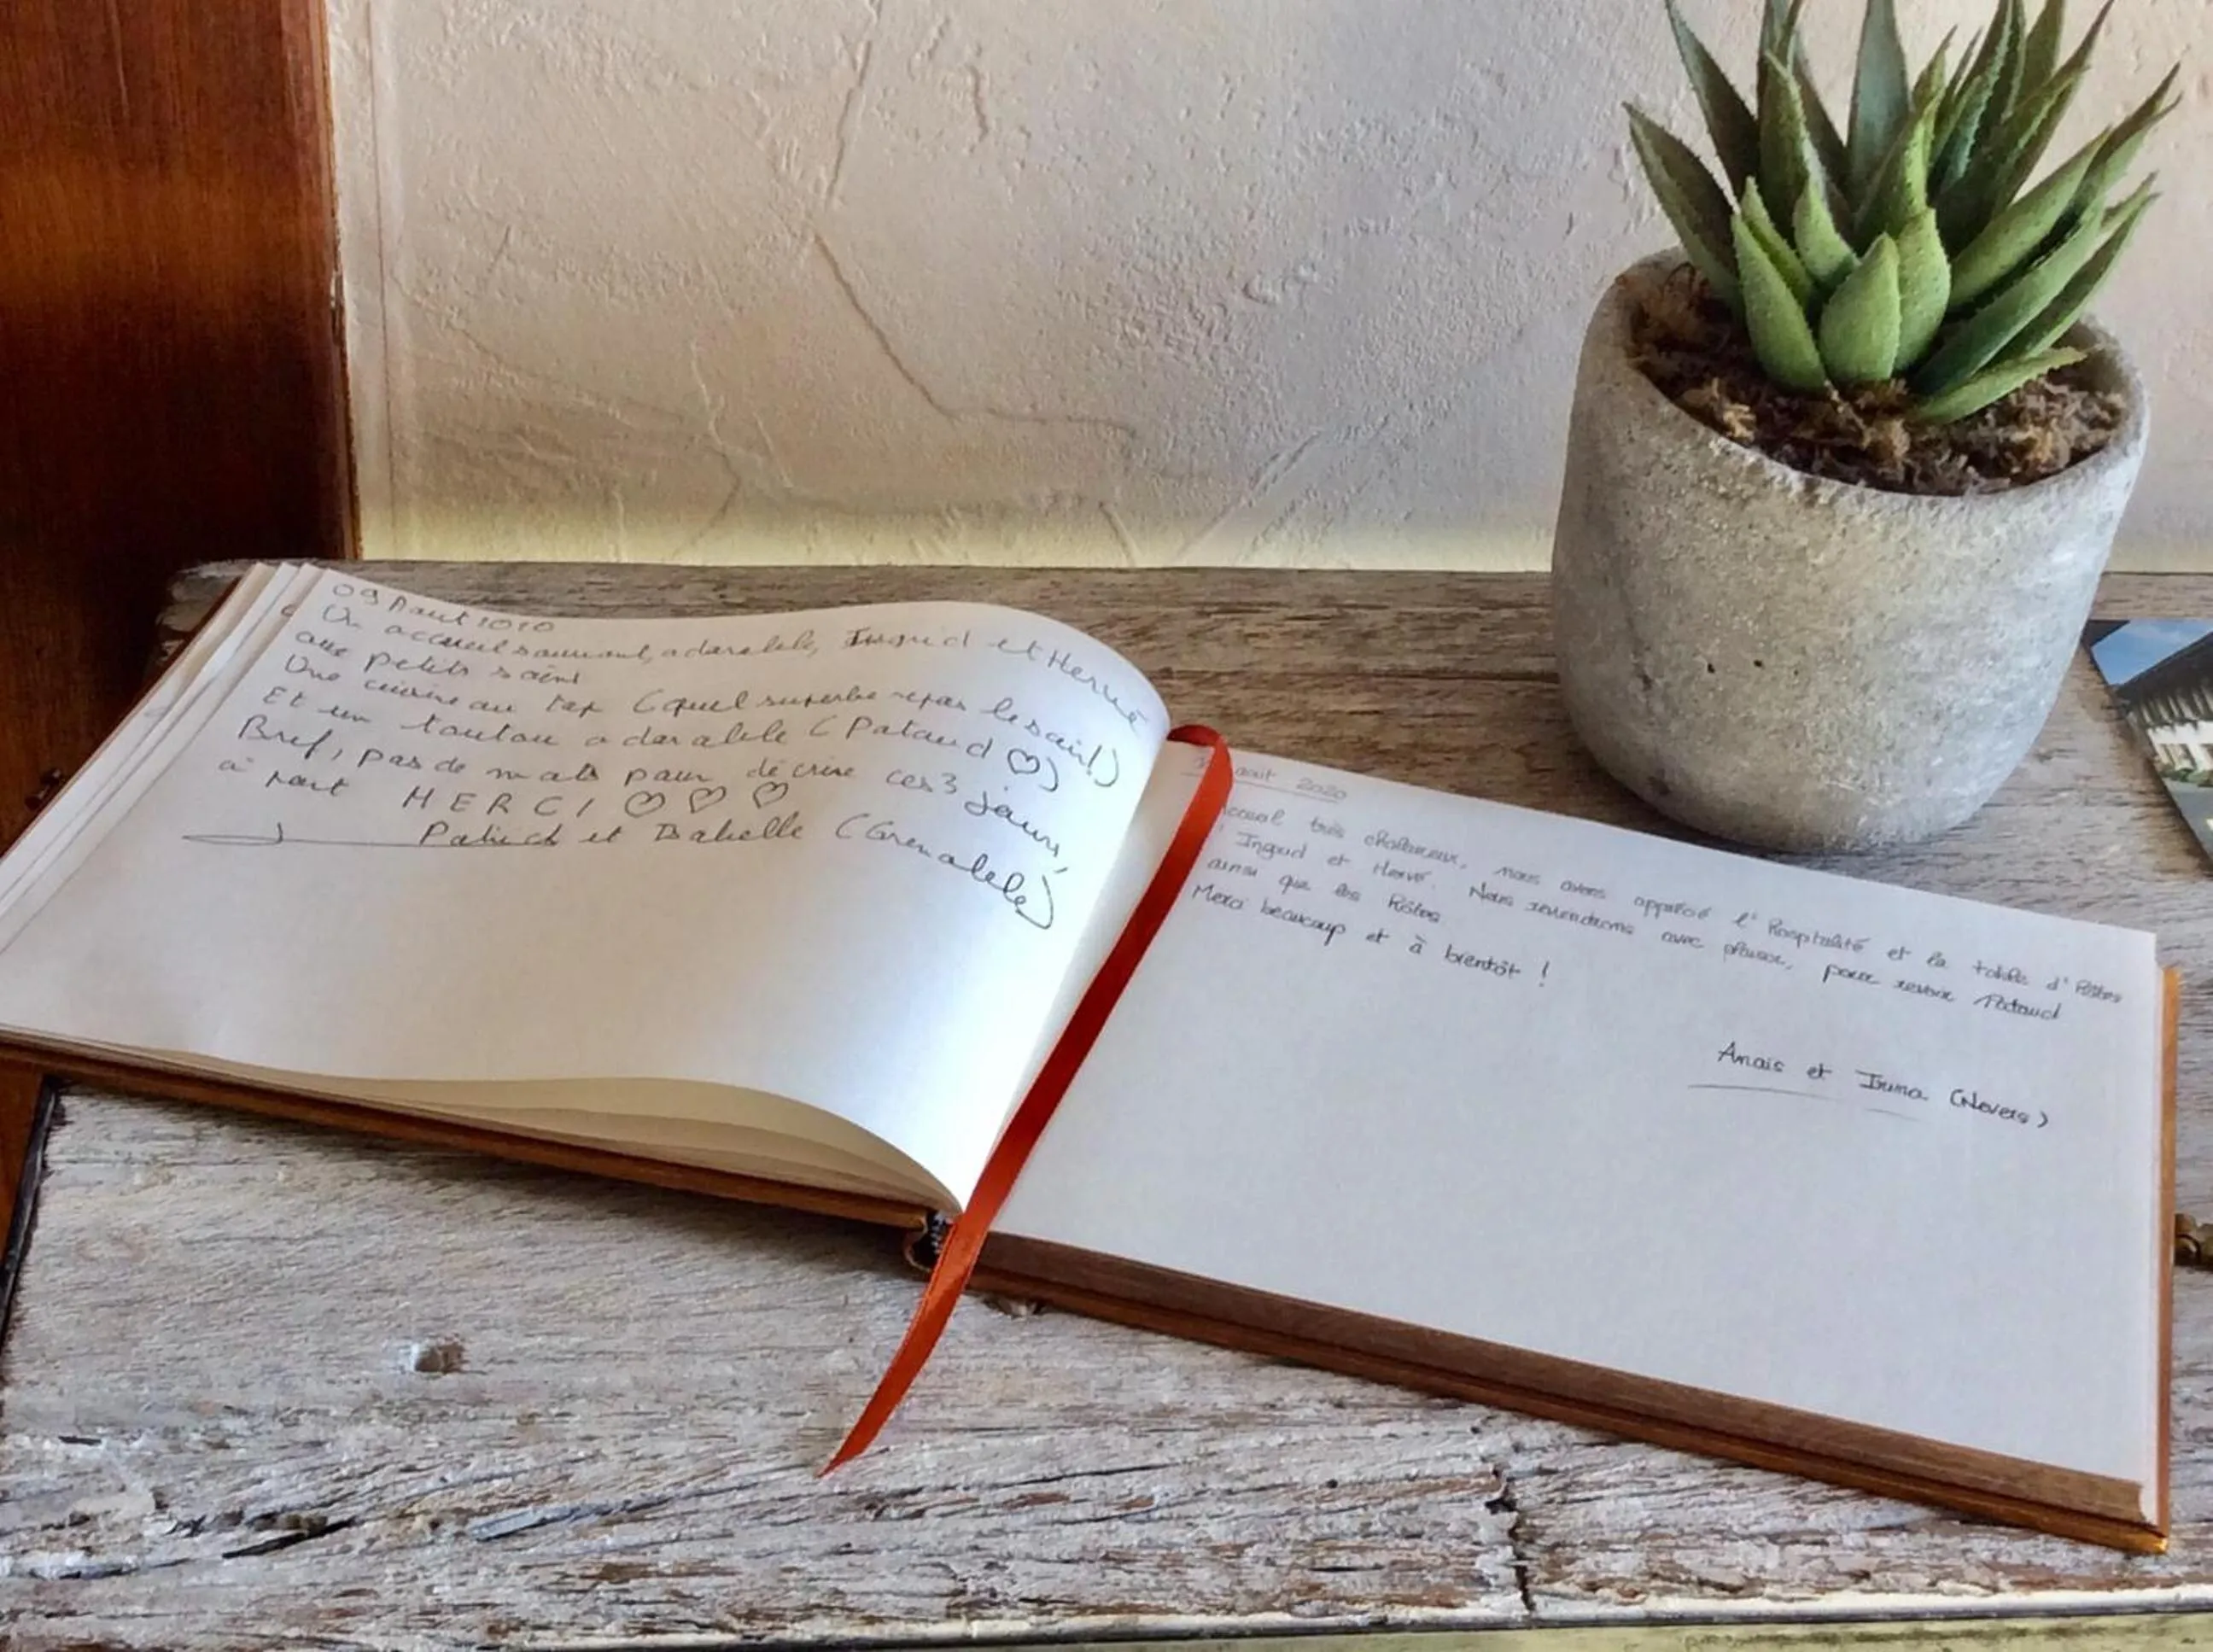 09 Aout 2020
Un accueil souriant, adorable, Ingrid et Hervé
aux petits soins
Une cuisine au top (quel superbe repas le soir!)
Et un toutou adorable (Pataud ♡)
Bref, pas de mots pour décrire ces 3 jours,
à part MERCI ♡ ♡ ♡
Patrick et Isabelle (Grenoble)
août 2020
Accueil très chaleureux, nous avons apprécié l'hospitalité et la table d'hôtes
d'Ingrid et Hervé. Nous reviendrons avec plaisir, pour revoir Pataud
ainsi que les hôtes
Merci beaucoup et à bientôt !
Anais et (Nevers)